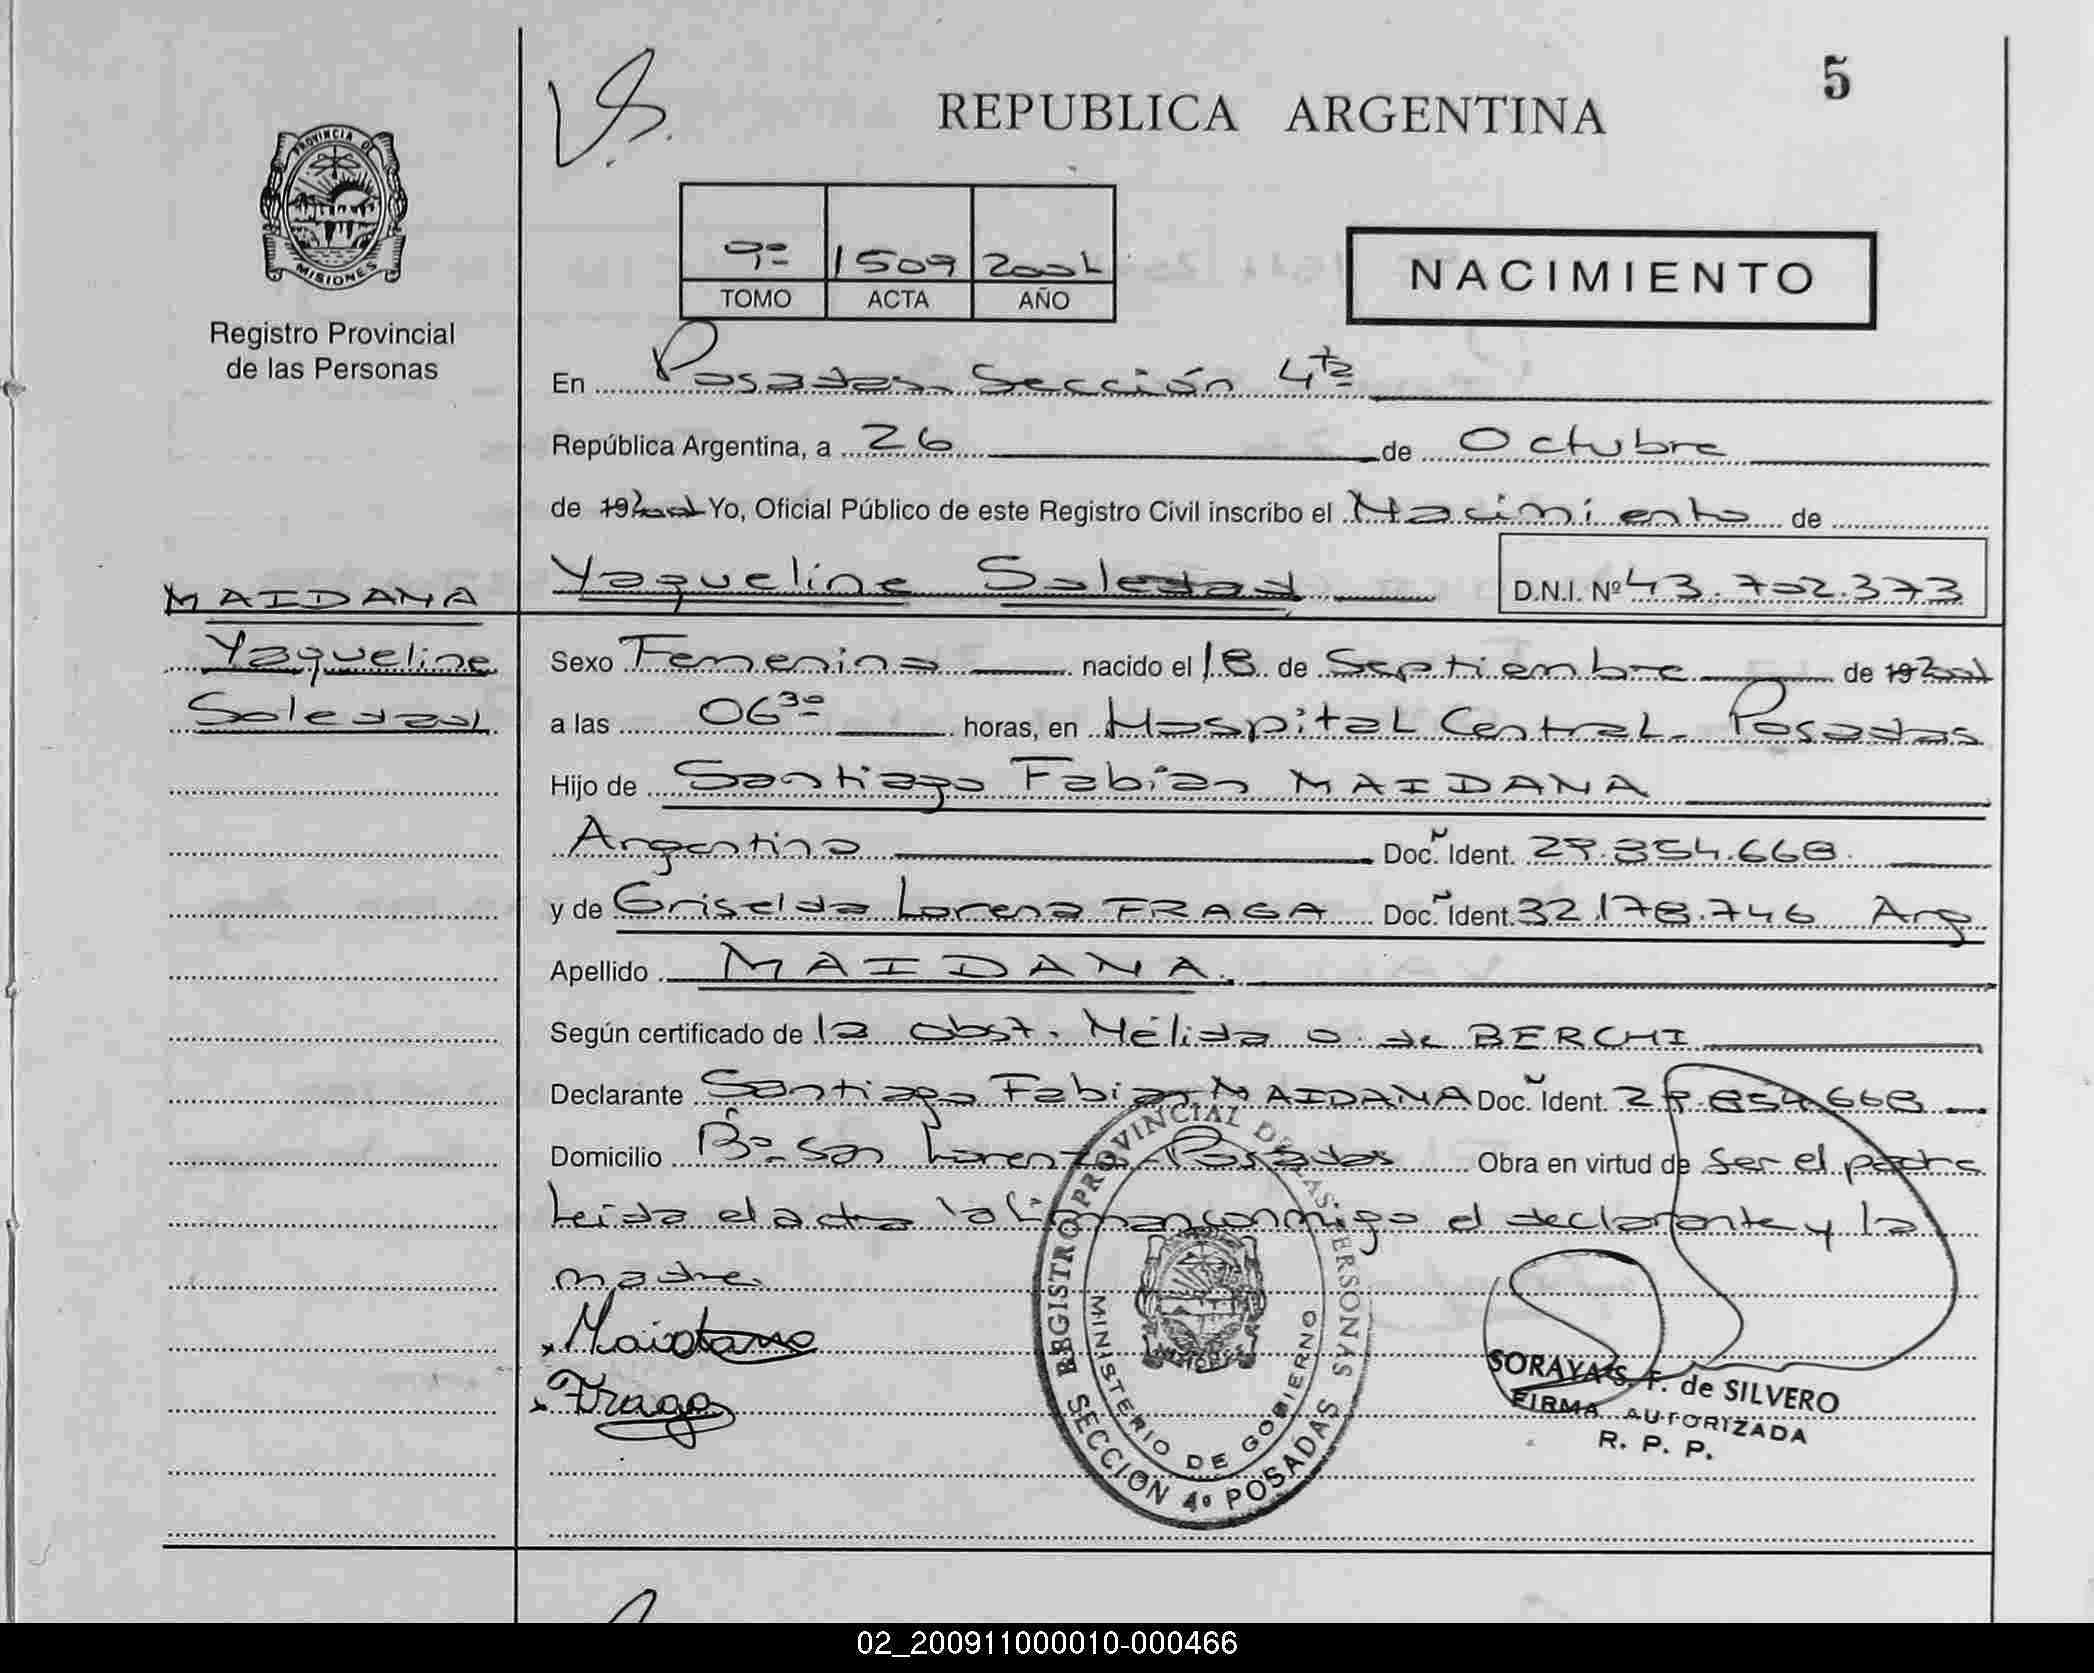 5
REPUBLICA ARGENTINA
PROVINCIA DE
MISIONES
Registro Provincial
de las Personas
9º 1509 2001
TOMO ACTA AÑO
NACIMIENTO
En Posadas Sección 4ta
República Argentina, a 26 de Octubre
de 19 2001 Yo, Oficial Público de este Registro Civil inscribo el Nacimiento de
Yaqueline Soledad D.N.I. Nº 43.702.373
MAIDANA
Yaqueline
Soledad
Sexo Femenino nacido el 18 de Septiembre de 19 2001
a las 06 30 horas, en Hospital Central - Posadas
Hijo de Santiago Fabian MAIDANA
Argentino Doc. Ident. 29.854.668.
y de Griselda Lorena FRAGA Doc. Ident. 32.178.746 Arg
Apellido MAIDANA.
Según certificado de la obst. Nélida O. de BERCHI
Declarante Santiago Fabian MAIDANA Doc. Ident. 29.854.668
Domicilio Bº San Lorenzo Posadas Obra en virtud de ser el padre
Leida el acta la firman conmigo el declarante y la
madre.
Maidana
Fraga
REGISTRO PROVINCIAL DE LAS PERSONAS
MINISTERIO DE GOBIERNO
SECCION 4º POSADAS
SORAYA S. F. de SILVERO
FIRMA AUTORIZADA
R. P. P.
02_200911000010-000466